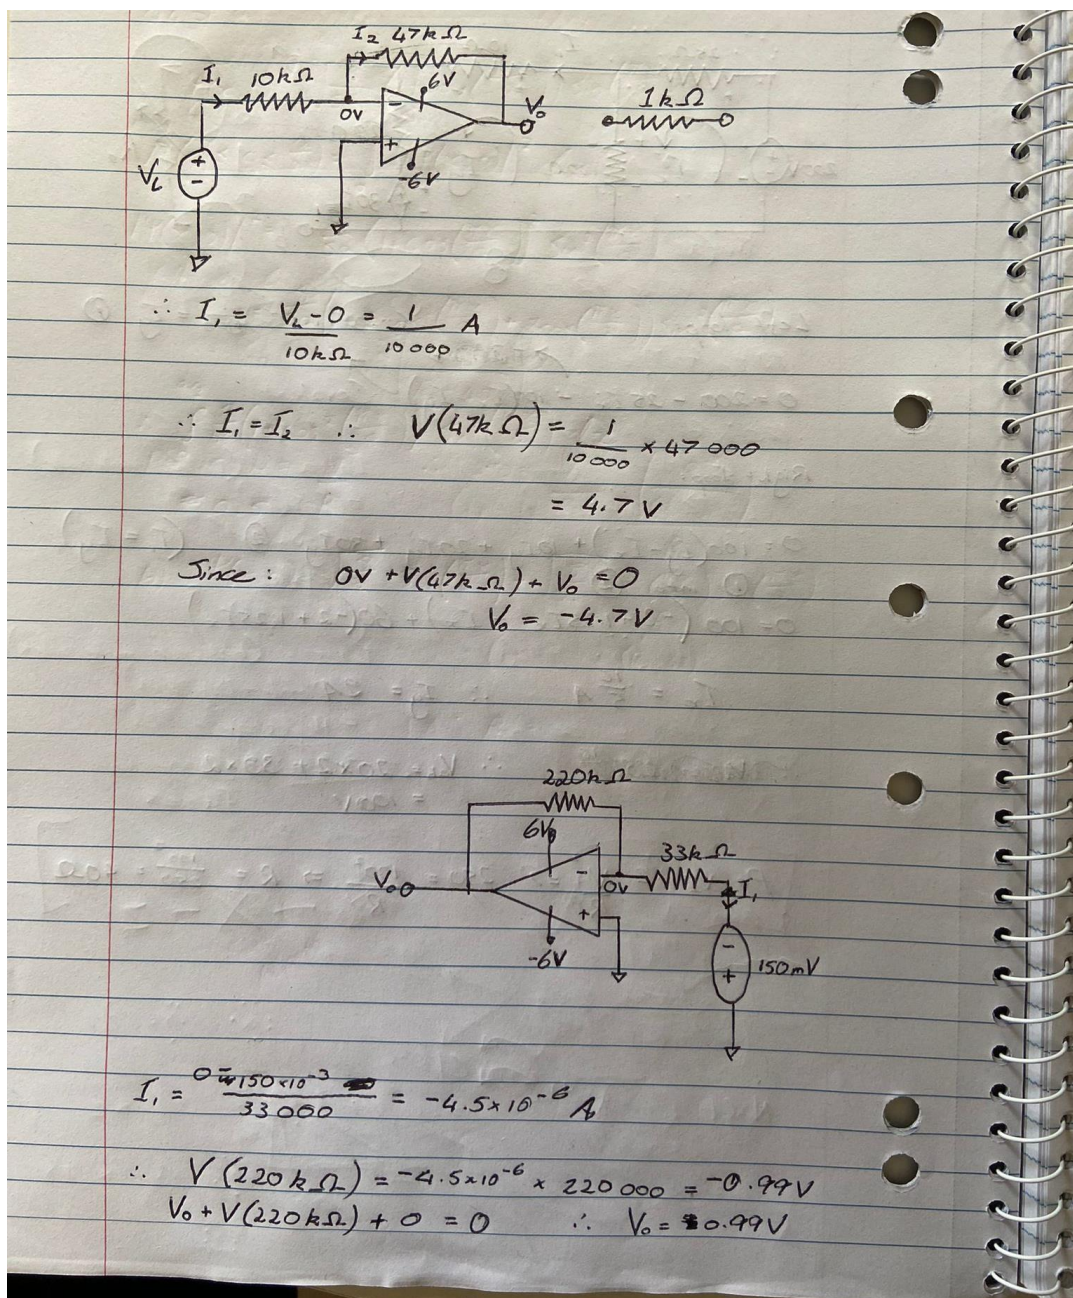 I₂ 47kΩ
I₁ 10kΩ
6V
0V
-
+
V₀
1kΩ
Vi
+
-
-6V
∴ I₁ = (Vi - 0)/10kΩ = 1/10 000 A
∴ I₁ = I₂ ∴ V(47kΩ) = 1/10 000 × 47 000
= 4.7 V
Since: 0V + V(47kΩ) + V₀ = 0
V₀ = -4.7V
220kΩ
6V
33kΩ
V₀
-
0V
I₁
+
-6V
-
150mV
+
I₁ = 0-150×10⁻³/33 000 = -4.5×10⁻⁶ A
∴ V(220kΩ) = -4.5×10⁻⁶ × 220 000 = -0.99V
V₀ + V(220kΩ) + 0 = 0 ∴ V₀ = 0.99V